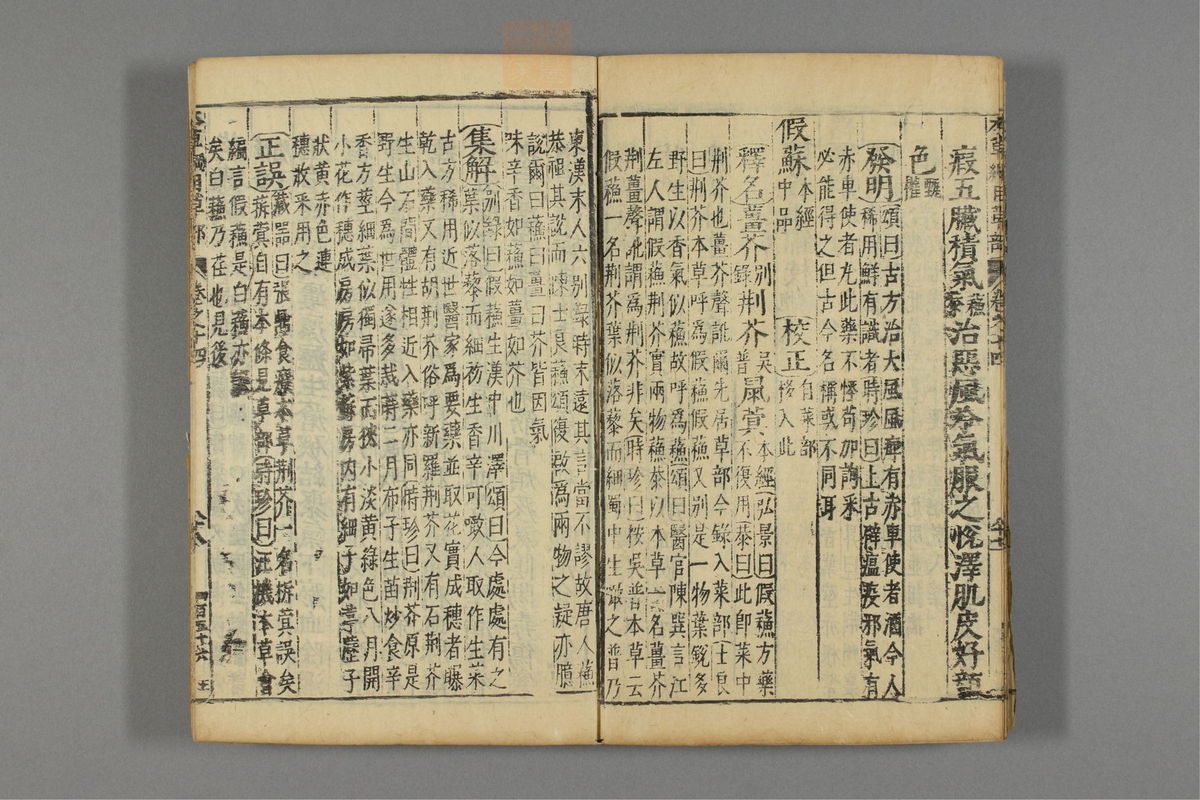 瘕五臟積氣蘇恭治惡風冷氣服之悅澤肌皮好顏
色甄權
發明頌曰古方治大風風痺有赤車使者酒今人
稀用鮮有識者時珍曰上古辟瘟疫邪氣有
赤車使者丸此藥不怪苟加詢采
必能得之但古今名稱或不同耳
假蘇本經中品 校正自菜部移入此
釋名薑芥別錄荆芥吳普鼠蓂本經弘景曰假蘇方藥
不復用恭曰此卽菜中
荆芥也薑芥聲訛爾先居草部今錄入菜部士良
曰荆芥本草呼爲假蘇假蘇又別是一物葉銳多
野生以香氣似蘇故呼爲蘇頌曰醫官陳巽言江
左人謂假蘇荆芥實兩物蘇恭以本草一名薑芥
荆薑聲訛謂爲荆芥非矣時珍曰按吳普本草云
假蘇一名荆芥葉似落藜而細蜀中生噉之普乃
東漢末人去別錄時未遠其言當不謬故唐人蘇
恭祖其說而陳士良蘇頌復啓爲兩物之疑亦臆
說爾曰蘇曰薑曰芥皆因氣
味辛香如蘇如薑如芥也
集解別錄曰假蘇生漢中川澤頌曰今處處有之
葉似落藜而細初生香辛可噉人取作生菜
古方稀用近世醫家爲要藥並取花實成穗者曝
乾入藥又有胡荆芥俗呼新羅荆芥又有石荆芥
生山石間體性相近入藥亦同時珍曰荆芥原是
野生今爲世用遂多栽蒔二月布子生苗炒食辛
香方莖細葉似獨帚葉而狹小淡黃綠色八月開
小花作穗成房房如紫蘇房内有細子如葶藶子
狀黃赤色連
穗收采用之
正誤藏器曰張鼎食療本草荆芥一名析蓂誤矣
菥蓂自有本條見草部時珍曰汪機本草會
編言假蘇是白蘇亦誤
矣白蘇乃荏也見後